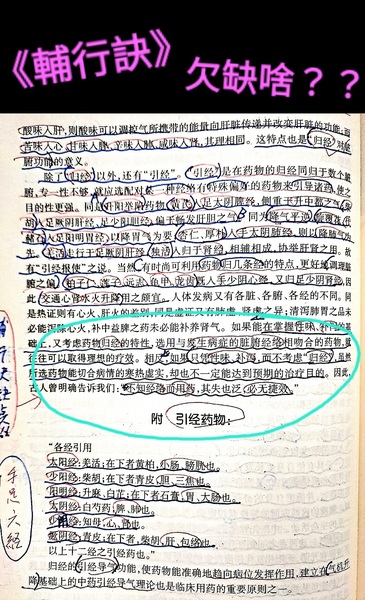 《輔行訣》 欠缺啥？？
酸味入肝，则酸味可以调控气所携带的能量向肝脏传递并改变肝脏的功能；而
苦味入心、甘味入脾、辛味入肺、咸味入肾，其理相同。这特点也是归经对
脏腑功能的意义。
除了“归经”以外，还有“引经”。“引经”是在药物的归经同归于数个脏
腑，专一性不够，就应选配对某一种经络有特殊偏专的药物来引导诸药，使之
目的性更强。同是升阳举陷药物，黄芪入足太阴脾经，侧重于升中都之气；柴
胡入足厥阴肝经、足少阳胆经，偏于畅发肝胆之气。同为降气平逆，旋覆花、代
赭石入足阳明胃经，以降胃气为要；杏仁、厚朴入手太阴肺经，则以降肺气为
先。羌活走行于足厥阴肝经，独活入归于肾经，相辅相成，协举肝肾之用。故
有“引经报使”之说。当然，有时尚可利用药物归几条经的特点，更好地调理
脏之偏，如子、莲子、远志、鱼甲、龙齿既入手少阴心经，又归足少阴肾经，由
此，交通心肾水火升降用之颇宜。人体发病又有各脏、各腑、各经的不同。同
是热证则有心火、肝火的差别，同是虚证又有肺虚、肾虚之异；清泻肺胃之品未
必能泻除心火，补中益脾之药未必能补养肾气。如果能在掌握性味、补泻的基
础上，又考虑药物归经的特性，选用与发生病症的脏腑经络相吻合的药物，最
往往可以取得理想的疗效。相反，如果只凭性味、补泻，而不考虑“归经”，虽然
所选药物能切合病情的寒热虚实，却也不一定能达到预期的治疗目的。因此，
古人曾明确告诉我们：“不知经络而用药，其失也泛，必无捷效。”
附 引经药物：
“各经引用
太阳经：羌活；在下者黄柏，小肠、膀胱也。
少阳经：柴胡；在下者青皮，胆、三焦也。
阳明经：升麻、白芷；在下者石膏，胃、大肠也。
太阴经：白芍药；脾、肺也。
少阴经：知母；心、肾也。
厥阴经：青皮；在下者，柴胡，肝、包络也。
以上十二经之引经药也。”
归经的引经导气功能，使药物能准确地趋向病位发挥作用，建立在气机升
降基础上的中药引经导气理论也是临床用药的重要原则之一。
手足六经